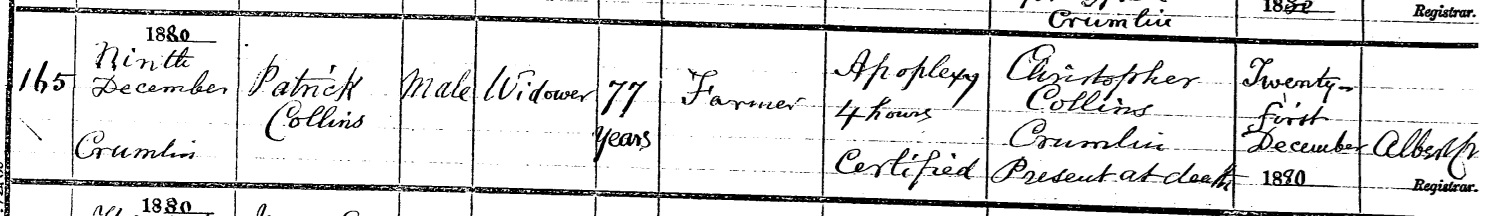 Crumlin
1880
Registrar.
165
1880
Ninth
December
Crumlin
Patrick
Collins
Male
Widower
77
Years
Farmer
Apoplexy
4 hours
Certified
Christopher
Collins
Crumlin
Present at death
Twenty-
first
December
1880
Registrar.
1880